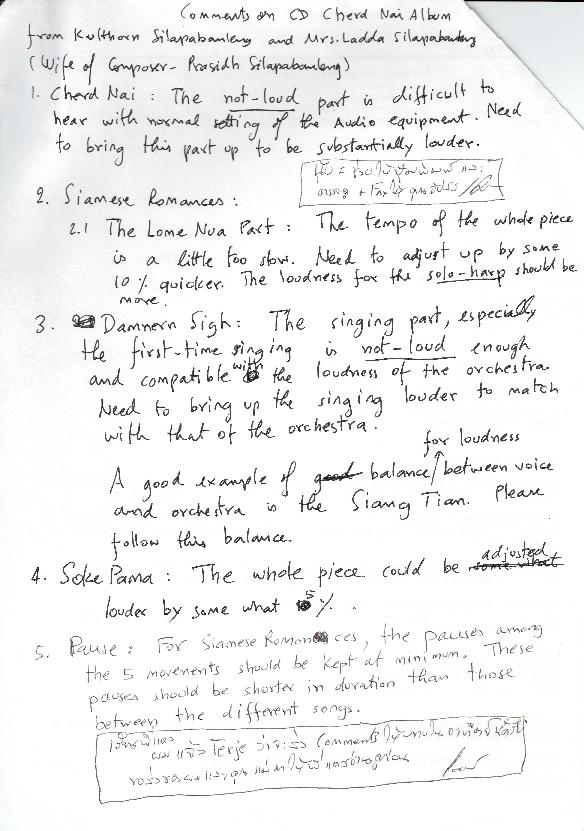 Comments on CD Cherd Nai Album
from Kulthorn Silapabanleng and Mrs. Ladda Silapabanleng
(Wife of Composer - Prasidh Silapabanleng)
1. Cherd Nai : The not-loud part is difficult to
hear with normal setting of the Audio equipment. Need
to bring this part up to be substantially louder.
2. Siamese Romances :
2.1 The Lome Nua Part : The tempo of the whole piece
is a little too slow. Need to adjust up by some
10 % quicker. The loudness for the solo-harp should be
more.
3. Damnern Sigh : The singing part, especially
the first-time singing is not-loud enough
and compatible with the loudness of the orchestra.
Need to bring up the singing louder to match
with that of the orchestra.
for loudness
A good example of good balance between voice
and orchestra is the Siang Tian. Please
follow this balance.
4. Soke Pama : The whole piece could be adjusted some what
louder by some what 5 %.
5. Pause : For Siamese Romances, the pauses among
the 5 movements should be kept at minimum. These
pauses should be shorter in duration than those
between the different songs.
Comments